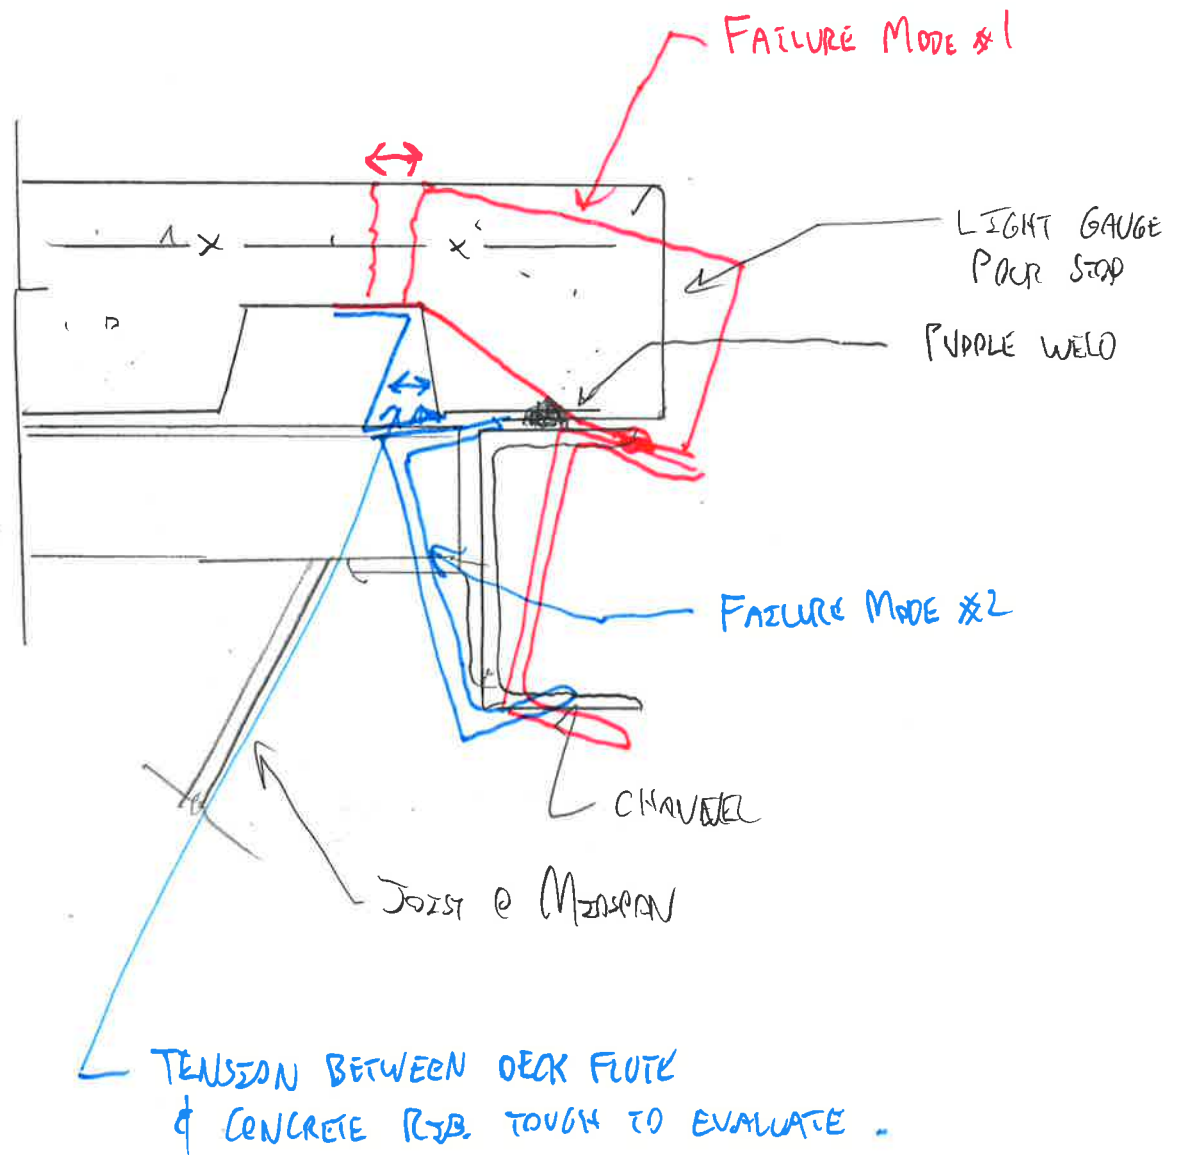 FAILURE MODE #1
LIGHT GAUGE
POUR STOP
PUDDLE WELD
FAILURE MODE #2
CHANNEL
JOIST @ MIDSPAN
TENSION BETWEEN DECK FLUTE
& CONCRETE RIB. TOUGH TO EVALUATE.